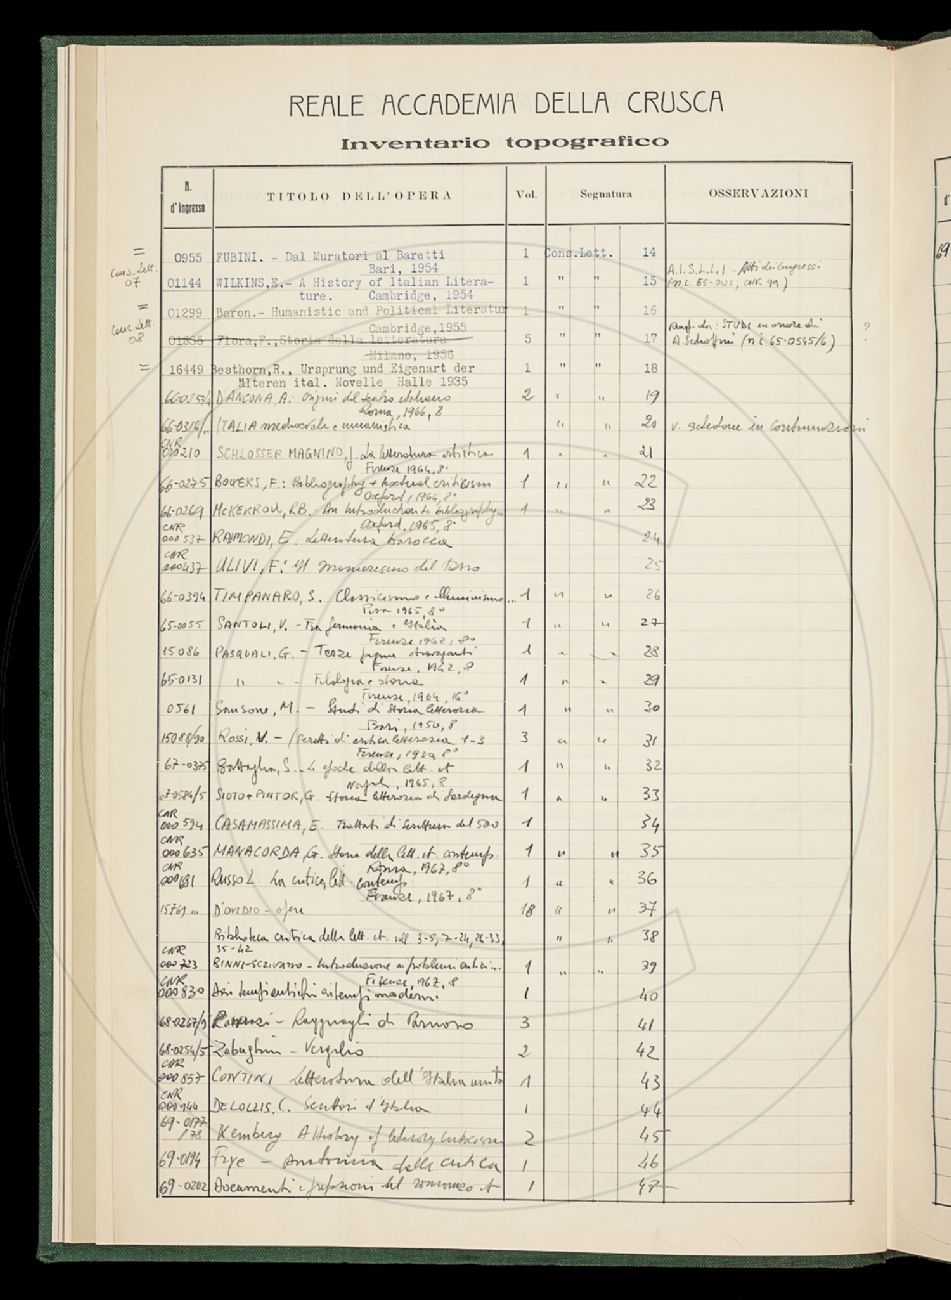 REALE ACCADEMIA DELLA CRUSCA
Inventario topografico
N. d'ingresso TITOLO DELL'OPERA Vol. Segnatura OSSERVAZIONI
= 0955 FUBINI. - Dal Muratori al Baretti 1 Cons.Lett. 14
Cons. Lett. 07 Bari, 1954 A.I.S.L.L.I - Atti dei Congressi
01144 WILKINS,E.- A History of Italian Litera- 1 " " 15
ture. Cambridge, 1954
= 01299 Baron.- Humanistic and Political Literatur 1 " " 16
Cons. Lett. 08 Cambridge,1955
01835 Flora,F.,Storia della letteratura 5 " " 17 A Schiaffini (n i 65-0545/6) ?
Milano, 1956
= 16449 Besthorn,R., Ursprung und Eigenart der 1 " " 18
älteren ital. Novelle Halle 1935
D'ANCONA, A: Origini del teatro italiano 2 " " 19
Roma, 1966, 8
66-0316/.. ITALIA medioevale e umanistica " " 20 v. schedone in continuazioni
CNR
000210 SCHLOSSER MAGNINO, J. La letteratura artistica 1 " " 21
Firenze 1964, 8°
66-0275 BOWERS, F.: Bibliography + textual criticism 1 " " 22
Oxford, 1966, 8°
66-0269 McKERROW, R.B. - An introduction to bibliography.. 1 " " 23
CNR Oxford, 1965, 8°
000537 RAIMONDI, E. Letteratura barocca 24
CNR
000437 ULIVI, F: Il manierismo del Tasso 25
66-0394 TIMPANARO, S. Classicismo e illuminismo... 1 " " 26
Pisa 1965, 8°
65-0055 SANTOLI, V. - Fra Germania e Italia 1 " " 27
Firenze 1962, 8°
15086 PASQUALI, G. - Terze pagine stravaganti 1 " " 28
Firenze, 1942, 8
65-0131 " " - Filologia e storia 1 " " 29
Firenze, 1964, 16°
0561 Sansone, M. - Studi di storia letteraria 1 " " 30
Bari, 1950, 8
15088/90 Rossi, V. - Scritti di critica letteraria 1-3 3 " " 31
Firenze, 1930, 8°
67-0375 Battaglia, S. - Le epoche della lett. it 1 " " 32
Napoli, 1965, 8
SIOTTO-PINTOR, G Storia letteraria di Sardegna 1 " " 33
CNR
000594 CASAMASSIMA, E. Trattati di scrittura del 500 1 34
CNR
000635 MANACORDA, G. Storia della lett. it. contemp. 1 " " 35
CNR Roma, 1967, 8°
000681 RUSSO L. La critica lett. contemp. 1 " " 36
Firenze, 1967, 8°
15769... D'OVIDIO - opere 18 " " 37
Biblioteca critica della lett. it. voll. 3-5, 7-24, 26-33, " " 38
CNR 35-42
000723 BINNI-SCRIVANO - Introduzione ai problemi critici... 1 " " 39
CNR Firenze, 1967, 8
000830 Dai tempi antichi ai tempi moderni 1 40
Boccalini - Ragguagli di Parnaso 3 41
68-0254/5 Zabughin - Vergilio 2 42
CNR
000857 CONTINI Letteratura dell'Italia unita 1 43
CNR
000944 DE LOLLIS, C. Scrittori d'Italia 1 44
69-0177
/78 A History of literary criticism 2 45
69-0194 Frye - Anatomia della critica 1 46
69-0202 Documenti e prefazioni del romanzo it 1 47